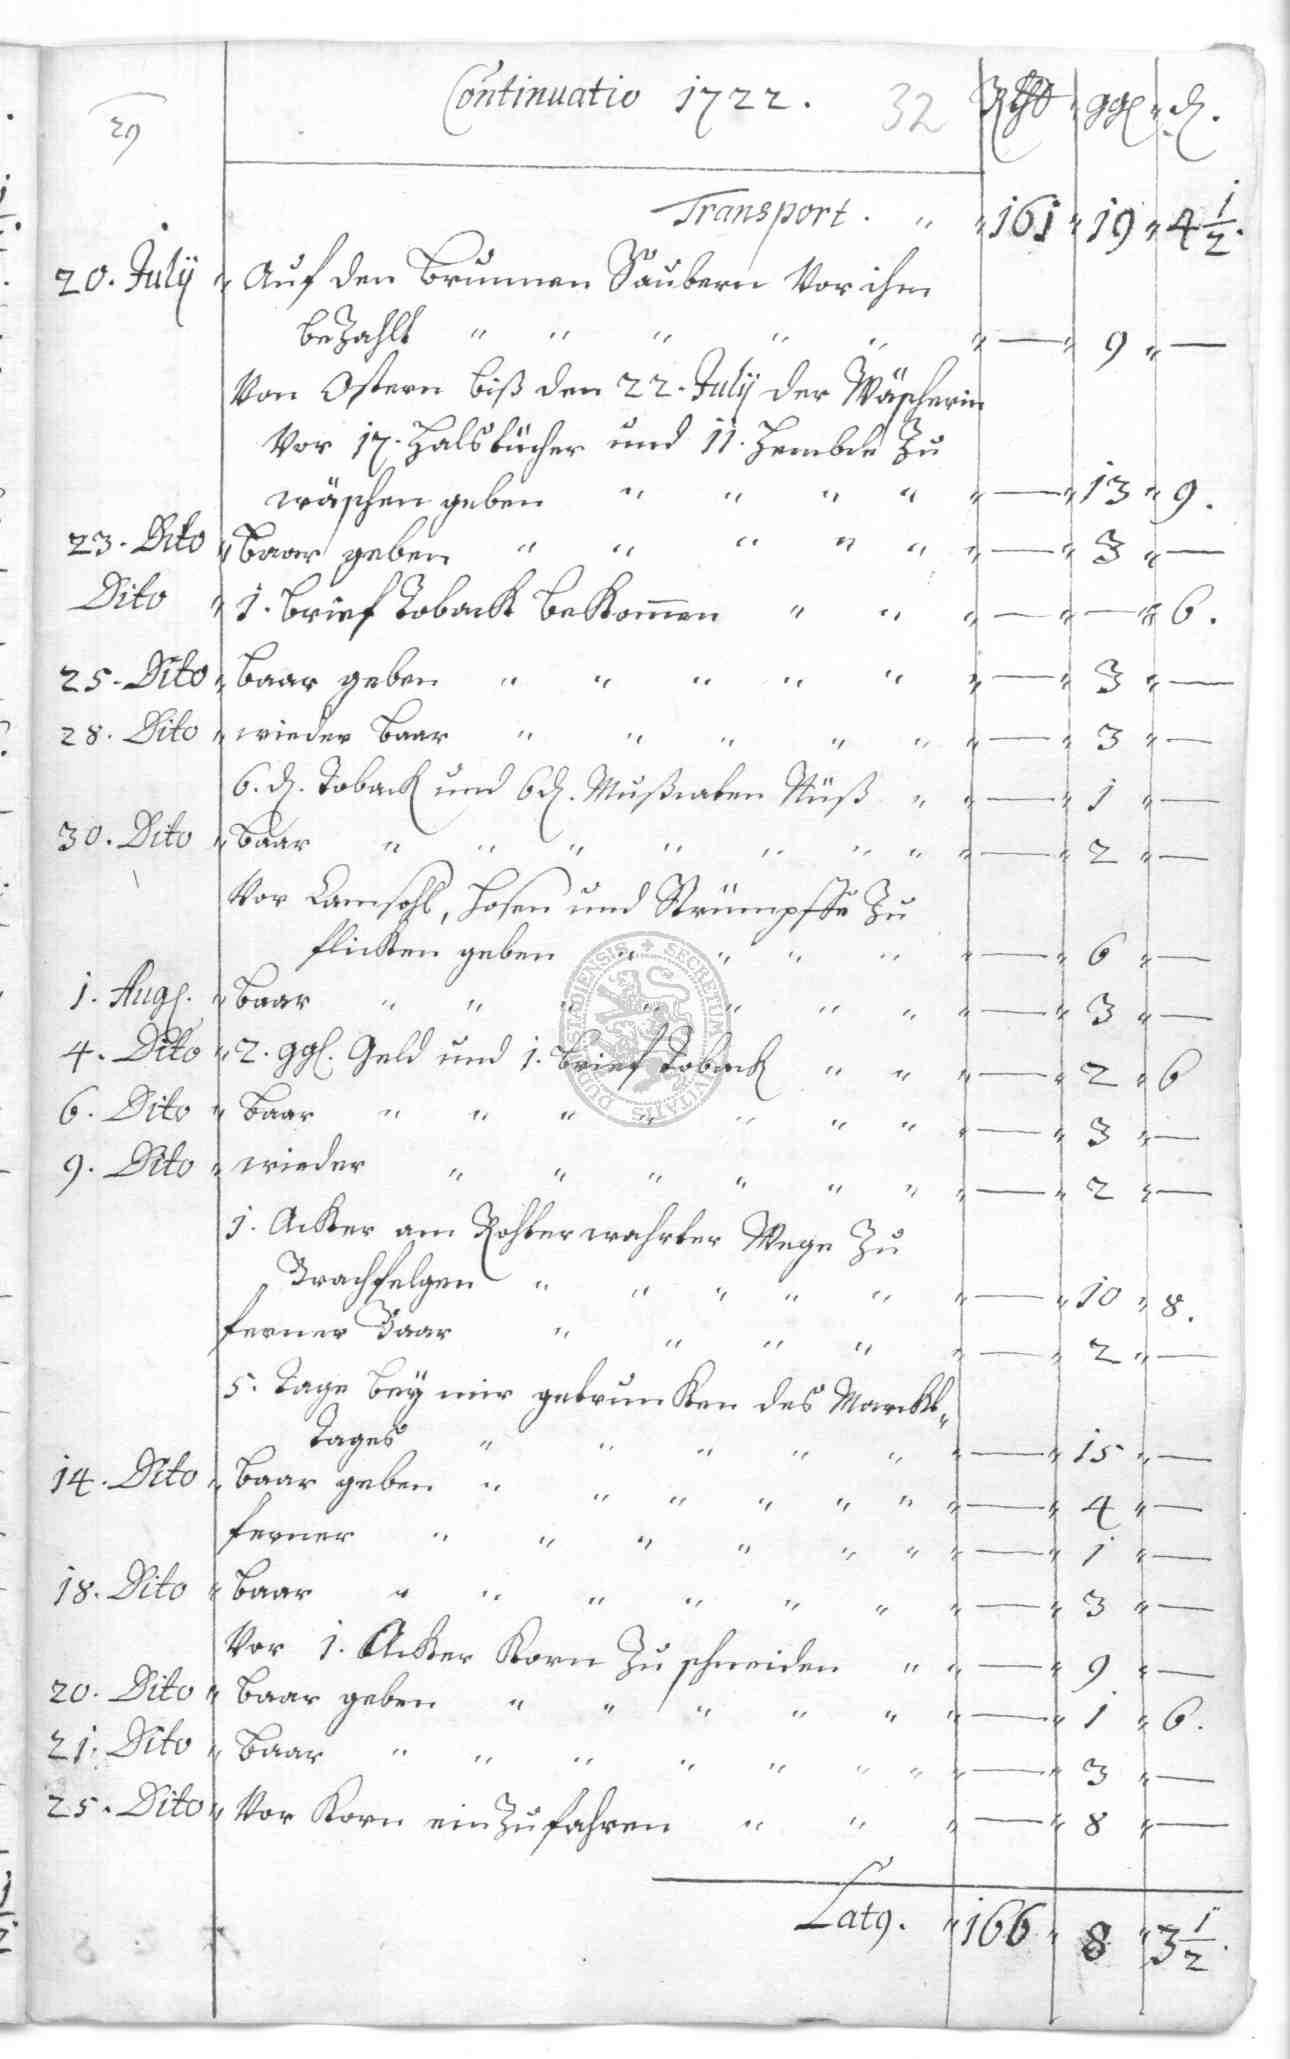 29
Continuatio 1722. 32 Rthl ggl d.
Transport. 161 19 4 1/2.
20. Julij Auf den Brunnen Säubern Vor ihn
beZahlt — 9 —
Von Ostern biß den 22. Julij der Wäscherin
Vor 17. Halstücher und 11. Hembde Zu
wäschen geben — 13 9.
23. Dito Baar geben — 3 —
Dito 1. brief Toback beKommen — — 6.
25. Dito baar geben — 3 —
28. Dito wieder baar — 3 —
6. d. Toback und 6 d. Mußcaten Nüß — 1 —
30. Dito baar — 2 —
Vor Camsohl, Hosen und Strümpffe Zu
flicken geben — 6 —
1. Aug. baar — 3 —
4. Dito 2. ggl. Geld und 1. brief Toback — 2 6
6. Dito baar — 3 —
9. Dito wieder — 2 —
1. Acker am Wege Zu
Brachfelgen — 10 8.
ferner Baar — 2 —
5. Tage bey mir getruncken des Marckt
Tages — 15 —
14. Dito baar geben — 4 —
ferner — 1 —
18. Dito baar — 3 —
Vor 1. Acker Korn Zu schneiden — 9 —
20. Dito baar geben — 1 6.
21. Dito baar — 3 —
25. Dito Vor Korn einZufahren — 8 —
Latq. 166 8 3 1/2.
SECRETUM CIVITATIS DUDERSTADIENSIS